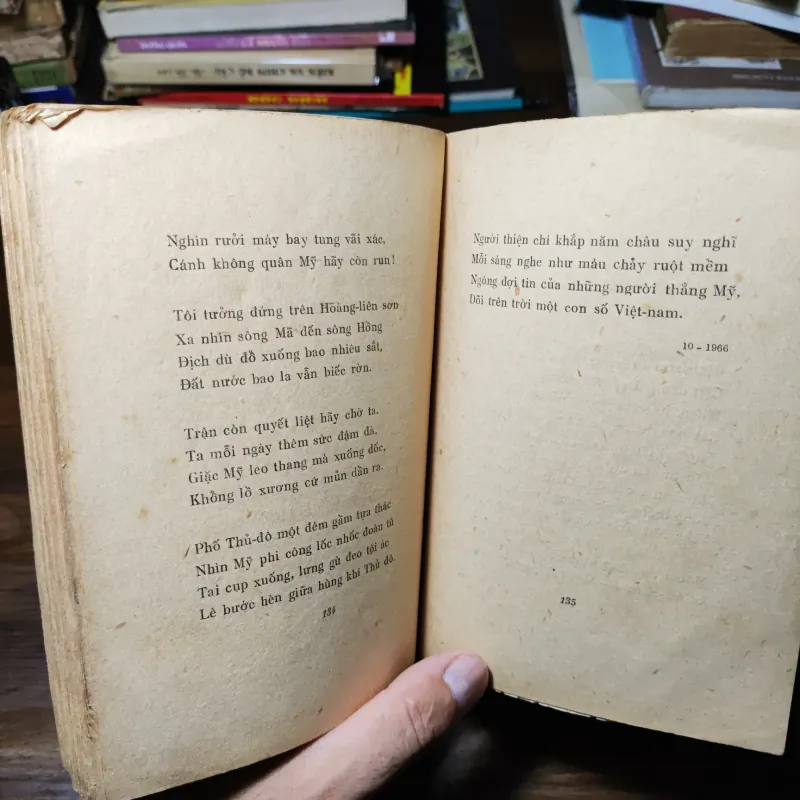 Nghìn rưởi máy bay tung vãi xác,
Cánh không quân Mỹ hãy còn run!
Tôi tưởng đứng trên Hoàng-liên sơn
Xa nhìn sông Mã đến sông Hồng
Địch dù đổ xuống bao nhiêu sắt,
Đất nước bao la vẫn biếc rờn.
Trận còn quyết liệt hãy chờ ta.
Ta mỗi ngày thêm sức đậm đà.
Giặc Mỹ leo thang mà xuống dốc,
Khổng lồ xương cứ mủn dần ra.
Phố Thủ-đô một đêm gầm tựa thác
Nhìn Mỹ phi công lốc nhốc đoàn tù
Tai cụp xuống, lưng gù đeo tội ác
Lê bước hèn giữa hùng khí Thủ đô.
134
Người thiện chí khắp năm châu suy nghĩ
Mỗi sáng nghe như máu chảy ruột mềm
Ngóng đợi tin của những người thắng Mỹ,
Dõi trên trời một con số Việt-nam.
10 - 1966
135